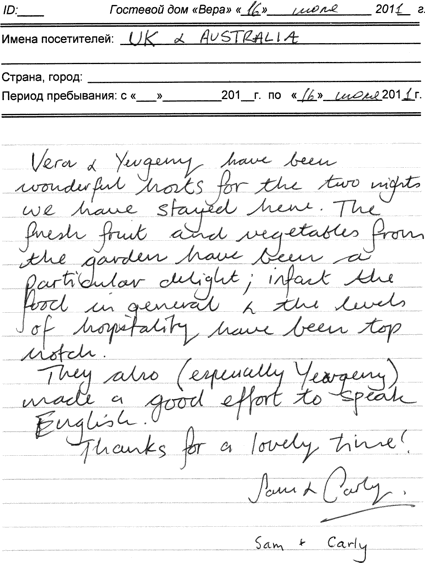 ID:____ Гостевой дом «Вера» « 16 » июле 2011 г.
Имена посетителей: UK & AUSTRALIA
Страна, город:
Период пребывания: с «___»__________201__г. по « 16 » июле 2011 г.
Vera & Yevgeny have been
wonderful hosts for the two nights
we have stayed here. The
fresh fruit and vegetables from
the garden have been a
particular delight; infact the
food in general & the levels
of hospitality have been top
notch.
They also (especially Yevgeny)
made a good effort to speak
English.
Thanks for a lovely time!
Sam & Carly.
Sam + Carly